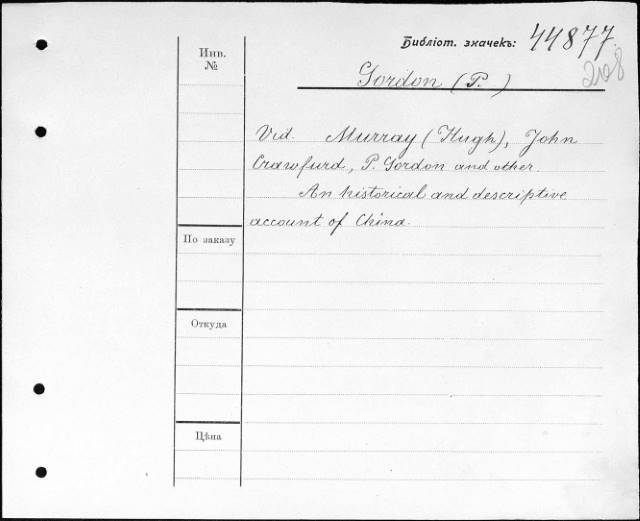 Библіот. значекъ: 44877.
208
Gordon (P.)
Инв.
№
Vid. Murray (Hugh), John
Crawfurd, P. Gordon and other.
An historical and descriptive
account of China.
По заказу
Откуда
Цѣна